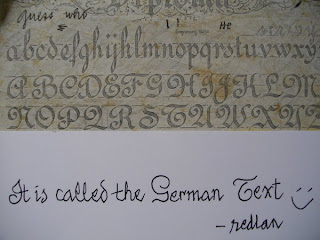 Diploma
guess who
abcdefghijklmnopqrstuvwxy
ABCDEFGHIJKLM
NOPQRSTUVWXYZ
It is called the German Text
- redlan